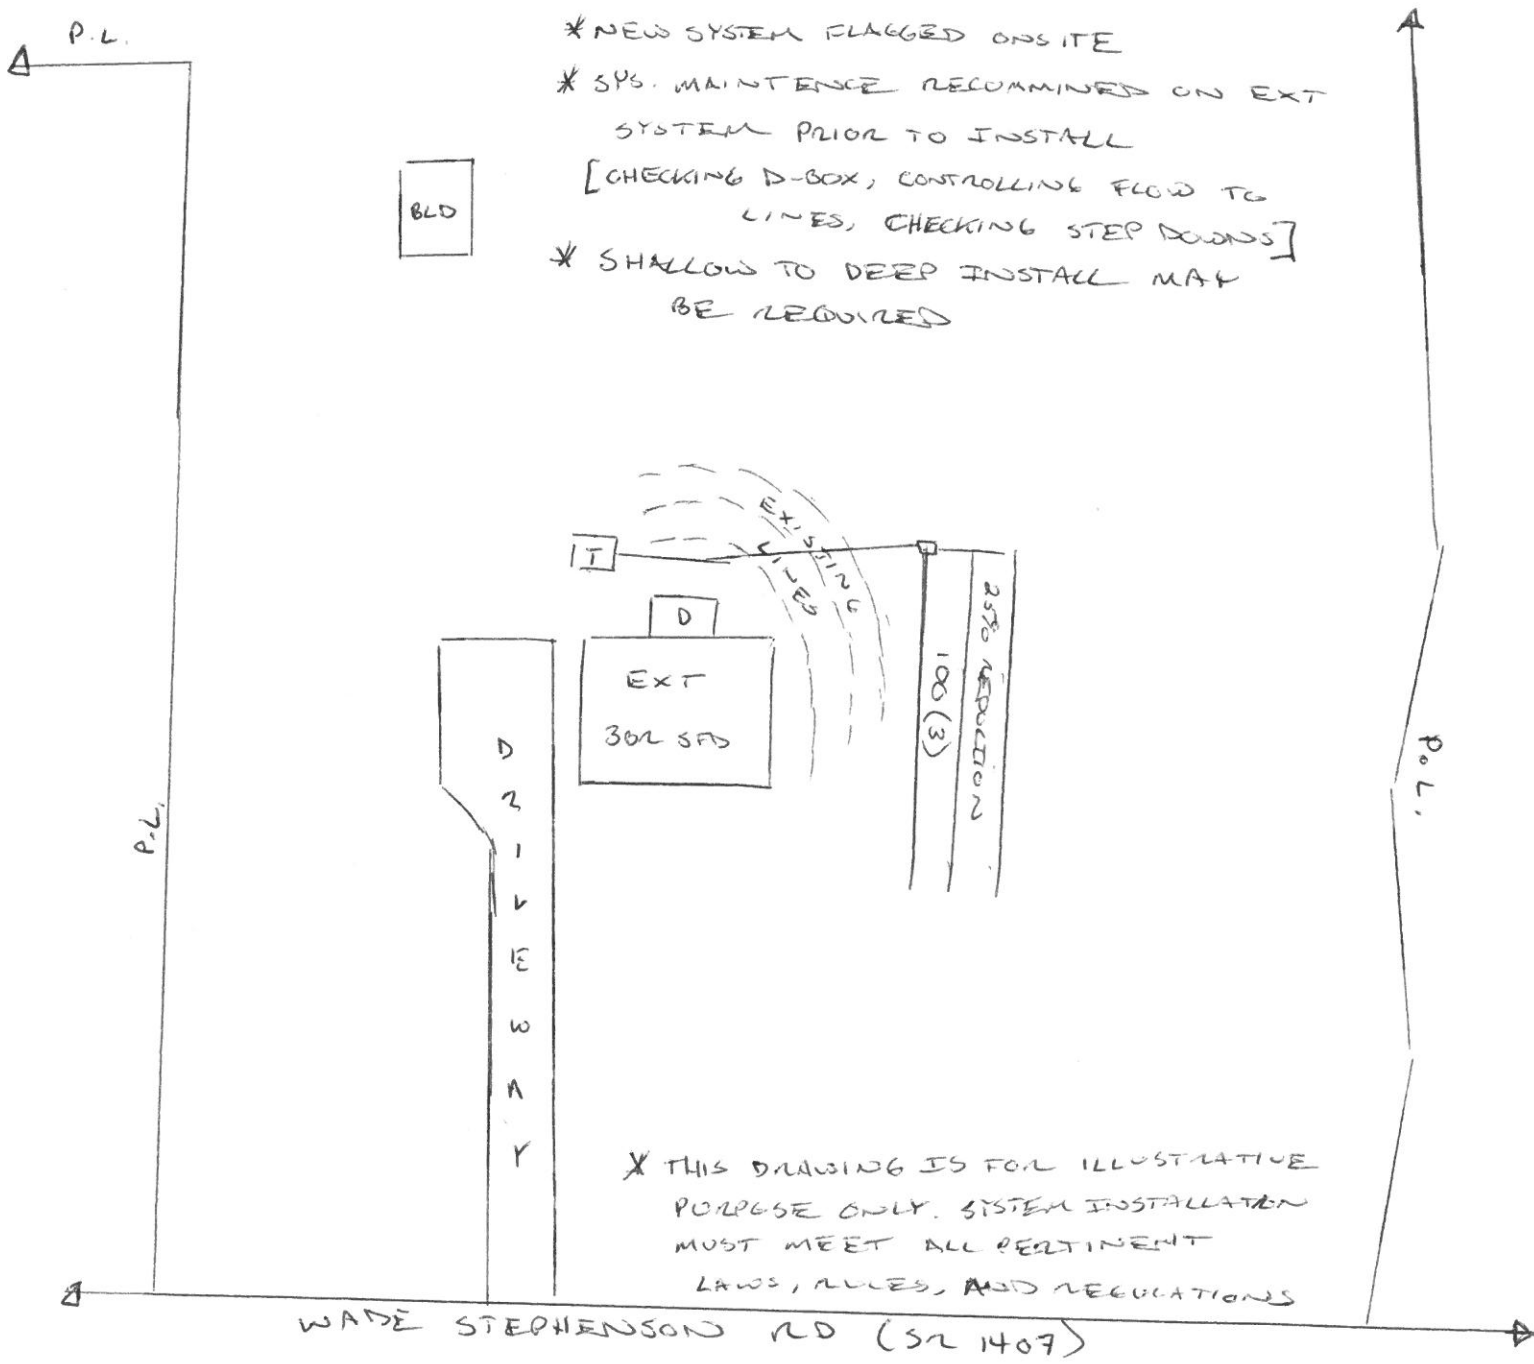 P.L.
* NEW SYSTEM FLAGGED ONSITE
* SYS. MAINTENCE RECOMMINED ON EXT
SYSTEM PRIOR TO INSTALL
[CHECKING D-BOX, CONTROLLING FLOW TO
LINES, CHECKING STEP DOWNS]
* SHALLOW TO DEEP INSTALL MAY
BE REQUIRED
BLD
EXISTING
LINES
T
D
EXT
3BR SFD
25% REDUCTION
100(3)
DRIVEWAY
P.L.
P.L.
* THIS DRAWING IS FOR ILLUSTRATIVE
PURPOSE ONLY. SYSTEM INSTALLATION
MUST MEET ALL PERTINENT
LAWS, RULES, AND REGULATIONS
WADE STEPHENSON RD (SR 1407)